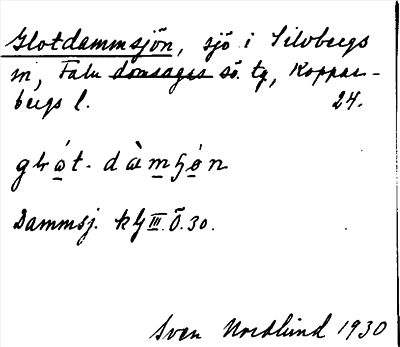 Glotdammsjön, sjö i Silvbergs
sn, Falu domsagas sö. tg, Koppar-
bergs l. 24.
glo̱t-dàm̱ʃo̱n
Dammsj. kbl III.Ö.30.
Sven Nordlund 1930